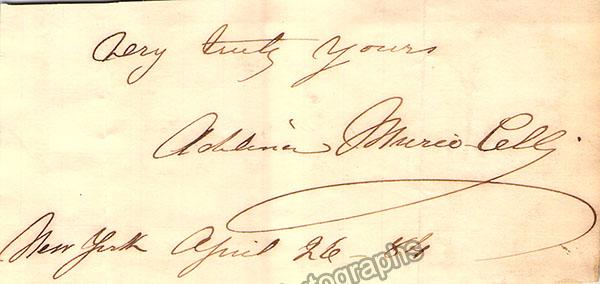 Very truly yours
Adelina Murio-Celli
New York April 26 -
tographs